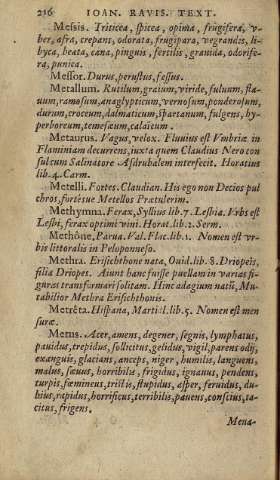 216 IOAN. RAVIS. TEXT.
Messis. Triticea, spicea, opima, frugifera, v-
ber, afra, crepans, odorata, frugipara, vegrandis, li-
byca, beata, cana, pinguis, fertilis, grauida, odorife-
ra, punica.
Messor. Durus, perustus, fessus.
Metallum. Rutilum, graium, viride, fuluum, fla-
uum, ramosum, anaglypticum, vernosum, ponderosum,
durum, croceum, dalmaticum, spartanum, fulgens, hy-
perboreum, temesæum, calaicum.
Metaurus. Vagus, velox. Fluuius est Vmbriæ in
Flaminiam decurrens, iuxta quem Claudius Nero con
sulcum Salinatore Asdrubalem interfecit. Horatius
lib. 4. Carm.
Metelli. Fortes. Claudian. His ego non Decios pul
chros, fortésue Metellos Prætulerim.
Methymna. Ferax, Syllius lib. 7. Lesbia. Vrbs est
Lesbi, ferax optimi vini. Horat. lib. 2. Serm.
Methone. Parua. Val. Flac. lib. 1. Nomen est vr-
bis littoralis in Peloponneso.
Methra. Erisichthone nata, Ouid. lib. 8. Driopeis,
filia Driopes. Aiunt hanc fuisse puellam in varias fi-
guras transformari solitam. Hinc adagium natū, Mu-
tabilior Methra Erisichthonis.
Metrêta. Hispana, Martial. lib. 5. Nomen est men
suræ.
Metus. Acer, amens, degener, segnis, lymphatus,
pauidus, trepidus, sollicitus, gelidus, vigil, parens odij,
exanguis, glacians, anceps, niger, humilis, languens,
malus, sæuus, horribilis, frigidus, ignauus, pendens,
turpis, fœmineus, tristis, stupidus, asper, feruidus, du-
bius, rapidus, horrificus, terribilis, pauens, conscius, ta-
citus, frigens.
Mena-